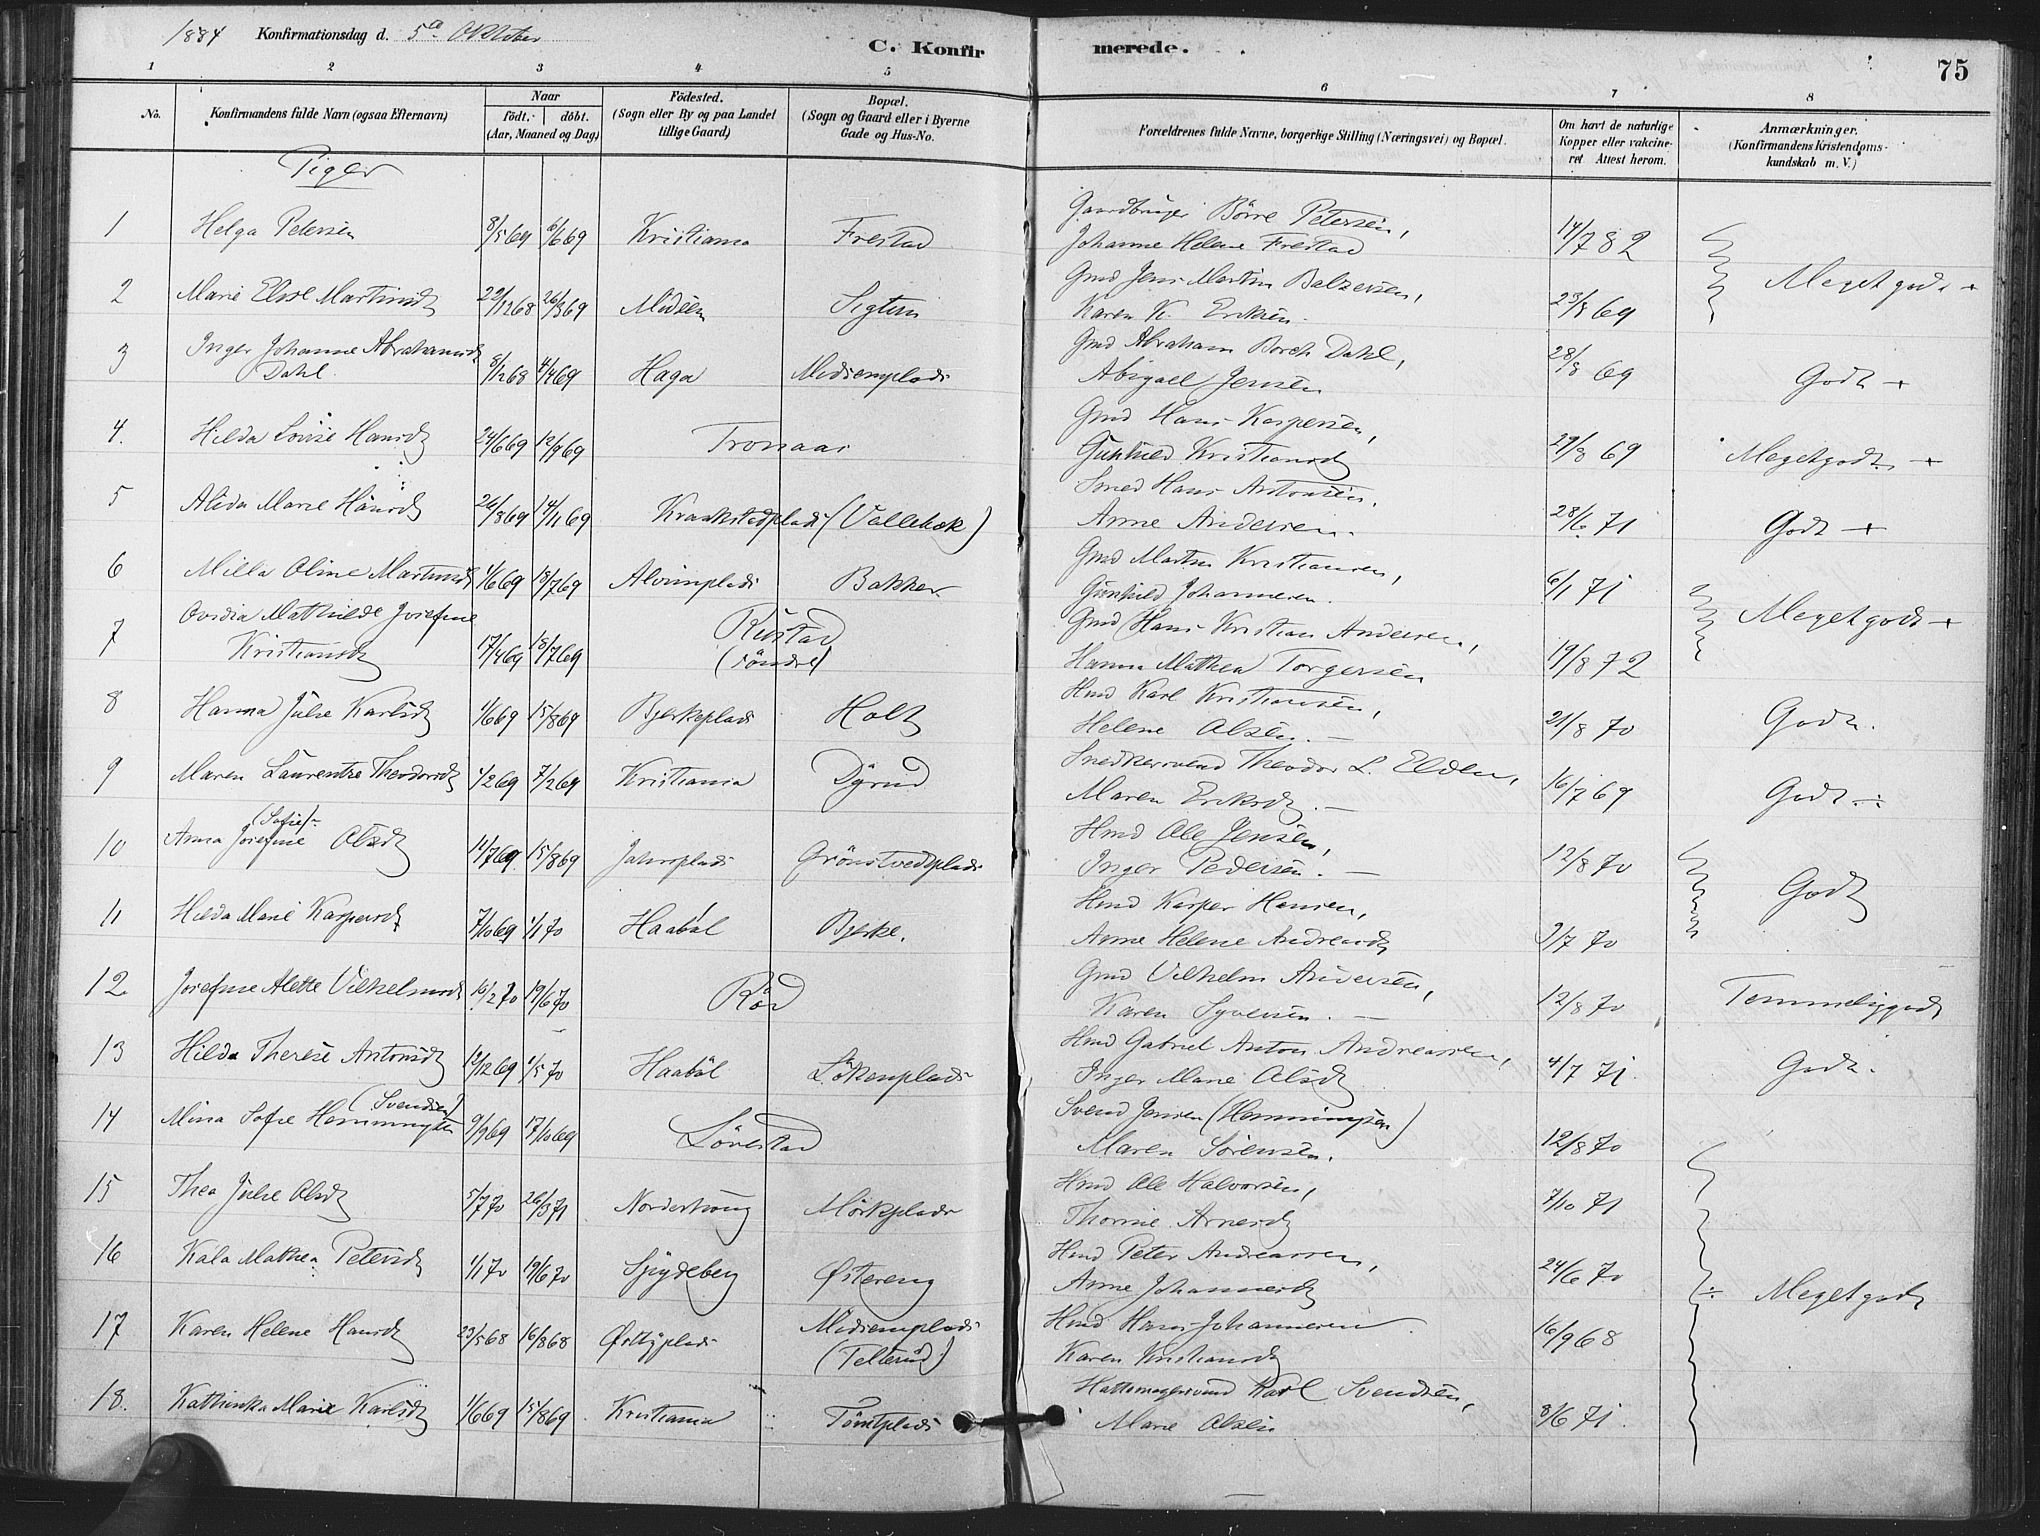 1884 Konfirmationsdag d. 5te Oktober
C. Konfirmerede.
75
1 2 3 4 5 6 7 8
No.
Konfirmandens fulde Navn (ogsaa Efternavn)
Naar
født. døbt.
(Aar, Maaned og Dag)
Fødested.
(Sogn eller By og paa Landet
tillige Gaard)
Bopæl.
(Sogn og Gaard eller i Byerne
Gade og Hus-No.
Forældrenes fulde Navne, borgerlige Stilling (Næringsvei) og Bopæl.
Om havt de naturlige
Kopper eller vakcine-
ret Attest herom.
Anmærkninger.
(Konfirmandens Kristendoms-
kundskab m. V.)
Piger
1 Helga Petersen 8/5 69 6/6 69 Kristiania Frestad
Gaardbruger Börre Petersen,
Johanne Helene Frestad 14/7 82
2 Marie Elise Martinsd 29/12 68 26/3 69 Midsem Sigtun
Gmd Jens Martin Balzersen,
Karen K. Eriksen. 23/8 69 Meget godt +
3 Inger Johanne Abrahamsd
Dahl 8/12 68 4/4 69 Haga Midsemplads
Gmd Abraham Borch Dahl,
Abigael Jensen 28/8 69 Godt +
4. Hilda Lovise Hansd 24/6 69 12/9 69 Tronaas
Gmd Hans Kaspersen,
Gunhild Kristiansd 29/8 69 Meget godt +
5 Alida Marie Hansd 26/8 69 14/11 69 Kraakstadplads (Vollebæk)
Smed Hans Antonsen,
Anne Andersen. 28/6 71 Godt +
6 Milla Oline Martinsd 1/6 69 18/7 69 Alvimplads Bakker
Gmd Martin Kristiansen,
Gunhild Johannesen. 6/1 71
7 Ovidia Mathilde Josefine
Kristiansd 17/4 69 18/7 69 Rustad
(söndre)
Gmd Hans Kristian Andersen,
Hanna Mathea Torgersen 19/8 72 Meget godt +
8 Hanna Julie Karlsd 1/6 69 15/8 69 Bjerkeplads Holt
Hmd Karl Kristiansen,
Helene Olsen. — 21/8 70 Godt.
9 Maren Laurentze Theodorsd 1/2 69 7/2 69 Kristiania Dyrud
Snedkersvend Theodor L. Elden,
Maren Eriksd. — 16/7 69 Godt ÷
10 Anna Josefine (Sofie) Olsd 11/7 69 15/8 69 Jahrplads Grönstvedtplads
Hmd Ole Jensen,
Inger Pedersen. — 12/8 70
11 Hilda Marie Kaspersd 7/10 69 1/1 70 Haaböl Bjerke.
Hmd Kasper Hansen,
Anne Helene Andreasd 3/7 70 Godt
12 Josefine Alette Vilhelmsd 16/2 70 19/6 70 Röd
Gmd Vilhelm Andersen,
Karen Syversen. — 12/8 70 Temmelig godt
13 Hilda Therese Antonsd 12/12 69 1/5 70 Haaböl Lökenplads
Hmd Gabriel Anton Andreassen,
Inger Marie Olsd 4/7 71 Godt.
14 Mina Sofie Hemmings (Svendsen) 9/9 69 17/10 69 Lövestad
Svend Jensen (Hemmingsen)
Maren Sörensen. 12/8 70
15 Thea Julie Olsd 5/7 70 26/3 71 Norderhoug Mörkplads
Hmd Ole Halvorsen,
Thorine Arnesd 7/10 71
16 Kala Mathea Petersd 1/1 70 19/6 70 Spydeberg Østereng
Hmd Peter Andreassen,
Anne Johannesd 24/6 70 ÷ Meget godt
17 Karen Helene Hansd 23/5 68 16/8 68 Østbyplads Midsemplads
(Telterud)
Hmd Hans Johannesen.
Karen Kristiansd 16/9 68
18. Kathinka Marie Karlsd 1/6 69 15/8 69 Kristiania Tomtplads
Hattemagersvend Karl Svendsen,
Marie Olsen 8/6 71.